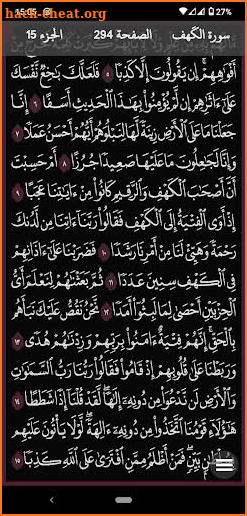 hack-cheat.org
15:05 27%
سورة الكهف الصفحة 294 الجزء 15
أَفْوَٰهِهِمْ ۚ إِن يَقُولُونَ إِلَّا كَذِبًا ٥ فَلَعَلَّكَ بَٰخِعٌ نَّفْسَكَ
عَلَىٰٓ ءَاثَٰرِهِمْ إِن لَّمْ يُؤْمِنُوا۟ بِهَٰذَا ٱلْحَدِيثِ أَسَفًا ٦ إِنَّا
جَعَلْنَا مَا عَلَى ٱلْأَرْضِ زِينَةً لَّهَا لِنَبْلُوَهُمْ أَيُّهُمْ أَحْسَنُ عَمَلًا ٧
وَإِنَّا لَجَٰعِلُونَ مَا عَلَيْهَا صَعِيدًا جُرُزًا ٨ أَمْ حَسِبْتَ
أَنَّ أَصْحَٰبَ ٱلْكَهْفِ وَٱلرَّقِيمِ كَانُوا۟ مِنْ ءَايَٰتِنَا عَجَبًا ٩
إِذْ أَوَى ٱلْفِتْيَةُ إِلَى ٱلْكَهْفِ فَقَالُوا۟ رَبَّنَآ ءَاتِنَا مِن لَّدُنكَ
رَحْمَةً وَهَيِّئْ لَنَا مِنْ أَمْرِنَا رَشَدًا ١٠ فَضَرَبْنَا عَلَىٰٓ ءَاذَانِهِمْ
فِى ٱلْكَهْفِ سِنِينَ عَدَدًا ١١ ثُمَّ بَعَثْنَٰهُمْ لِنَعْلَمَ أَىُّ
ٱلْحِزْبَيْنِ أَحْصَىٰ لِمَا لَبِثُوٓا۟ أَمَدًا ١٢ نَّحْنُ نَقُصُّ عَلَيْكَ نَبَأَهُم
بِٱلْحَقِّ ۚ إِنَّهُمْ فِتْيَةٌ ءَامَنُوا۟ بِرَبِّهِمْ وَزِدْنَٰهُمْ هُدًى ١٣
وَرَبَطْنَا عَلَىٰ قُلُوبِهِمْ إِذْ قَامُوا۟ فَقَالُوا۟ رَبُّنَا رَبُّ ٱلسَّمَٰوَٰتِ
وَٱلْأَرْضِ لَن نَّدْعُوَا۟ مِن دُونِهِۦٓ إِلَٰهًا ۖ لَّقَدْ قُلْنَآ إِذًا شَطَطًا ١٤
هَٰٓؤُلَآءِ قَوْمُنَا ٱتَّخَذُوا۟ مِن دُونِهِۦٓ ءَالِهَةً ۖ لَّوْلَا يَأْتُونَ عَلَيْهِم
بِسُلْطَٰنٍۭ بَيِّنٍ ۖ فَمَنْ أَظْلَمُ مِمَّنِ ٱفْتَرَىٰ عَلَى ٱللَّهِ كَذِبًا ١٥
hack-cheat.org